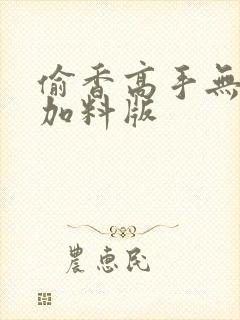 偷香高手無
加料版
農惠民